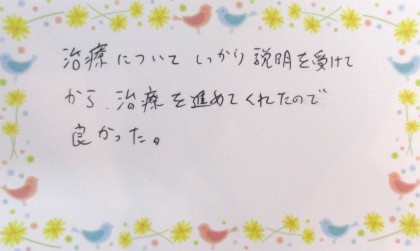 治療について しっかり説明を受けて
から、治療を進めてくれたので
良かった。